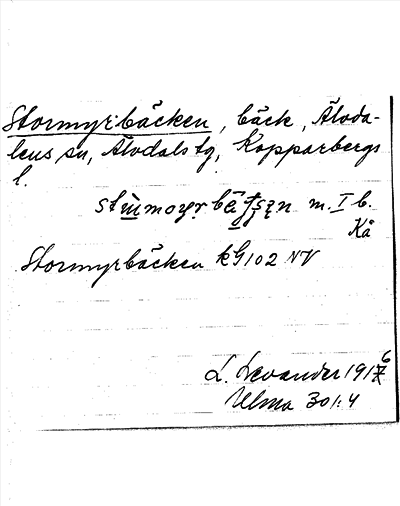 Stormyrbäcken, bäck, Älvda-
lens sn, Älvdals tg, Kopparbergs
l.
m. I b.
Kå
Stormyrbäcken kG 102 NV
L. Levander 1916
Ulma 301:4